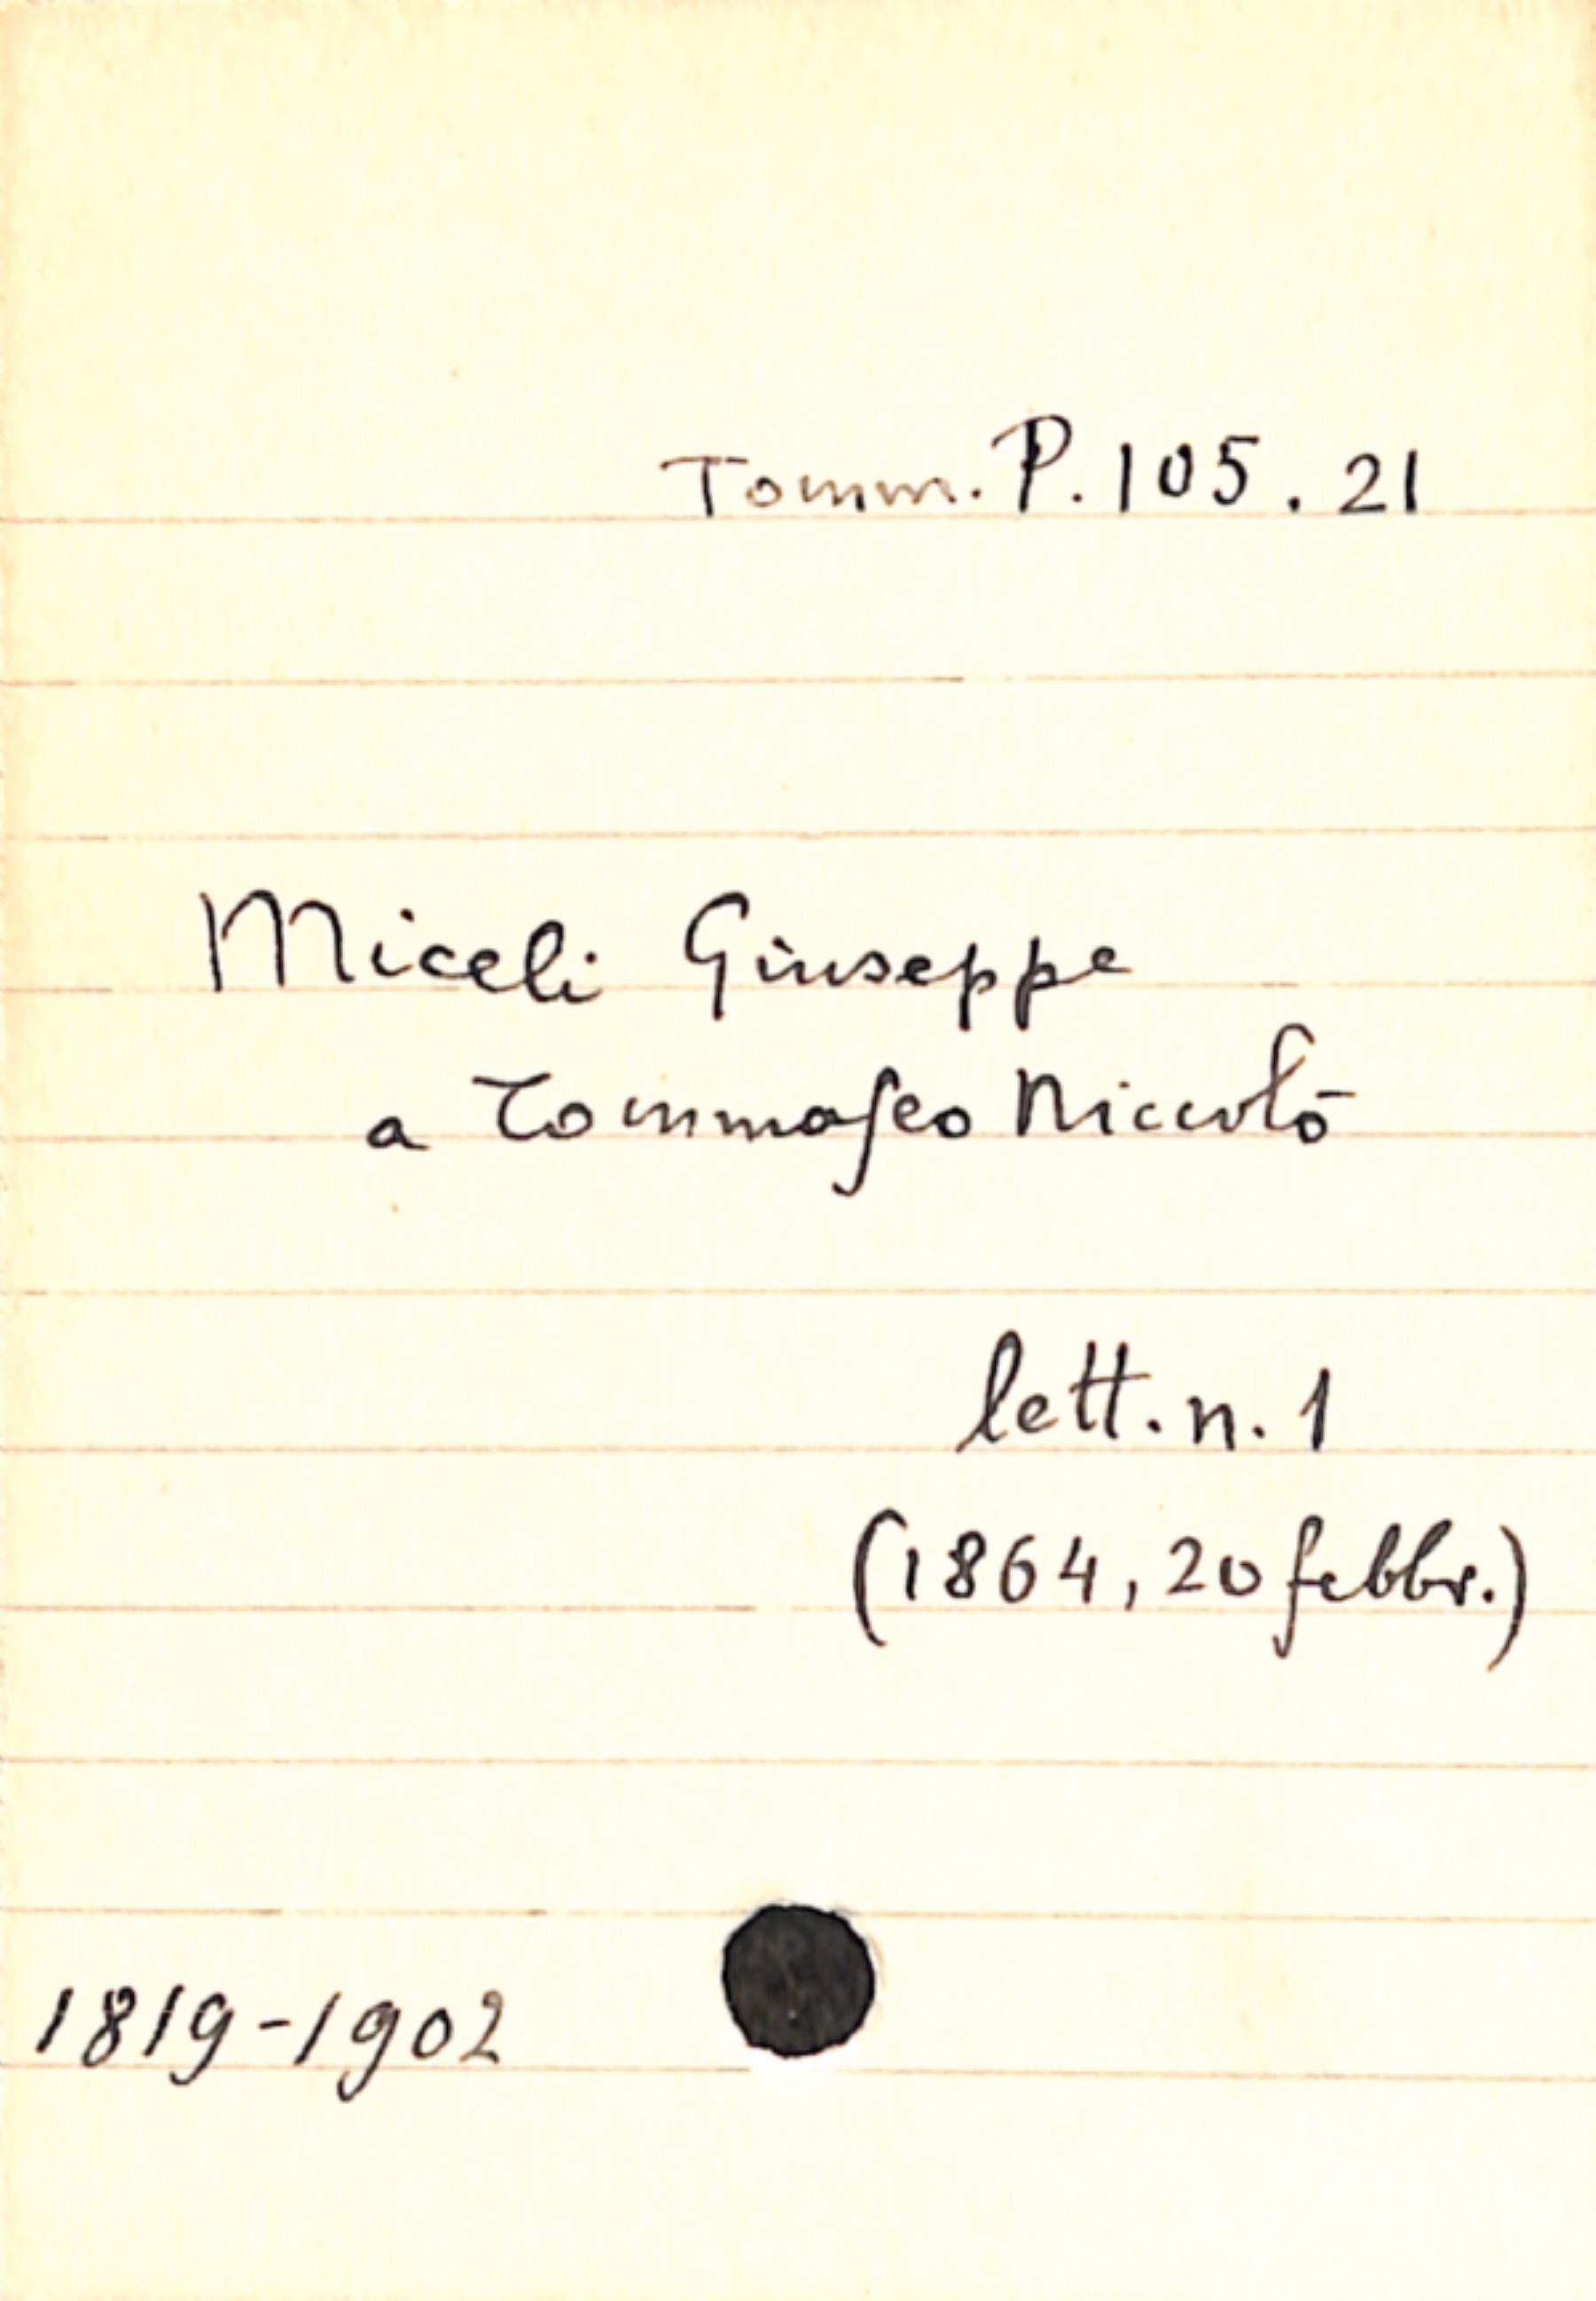 Tomm. P. 105. 21
Miceli Giuseppe
a Tommaseo Niccolò
lett. n. 1
(1864, 20 febbr.)
1819-1902